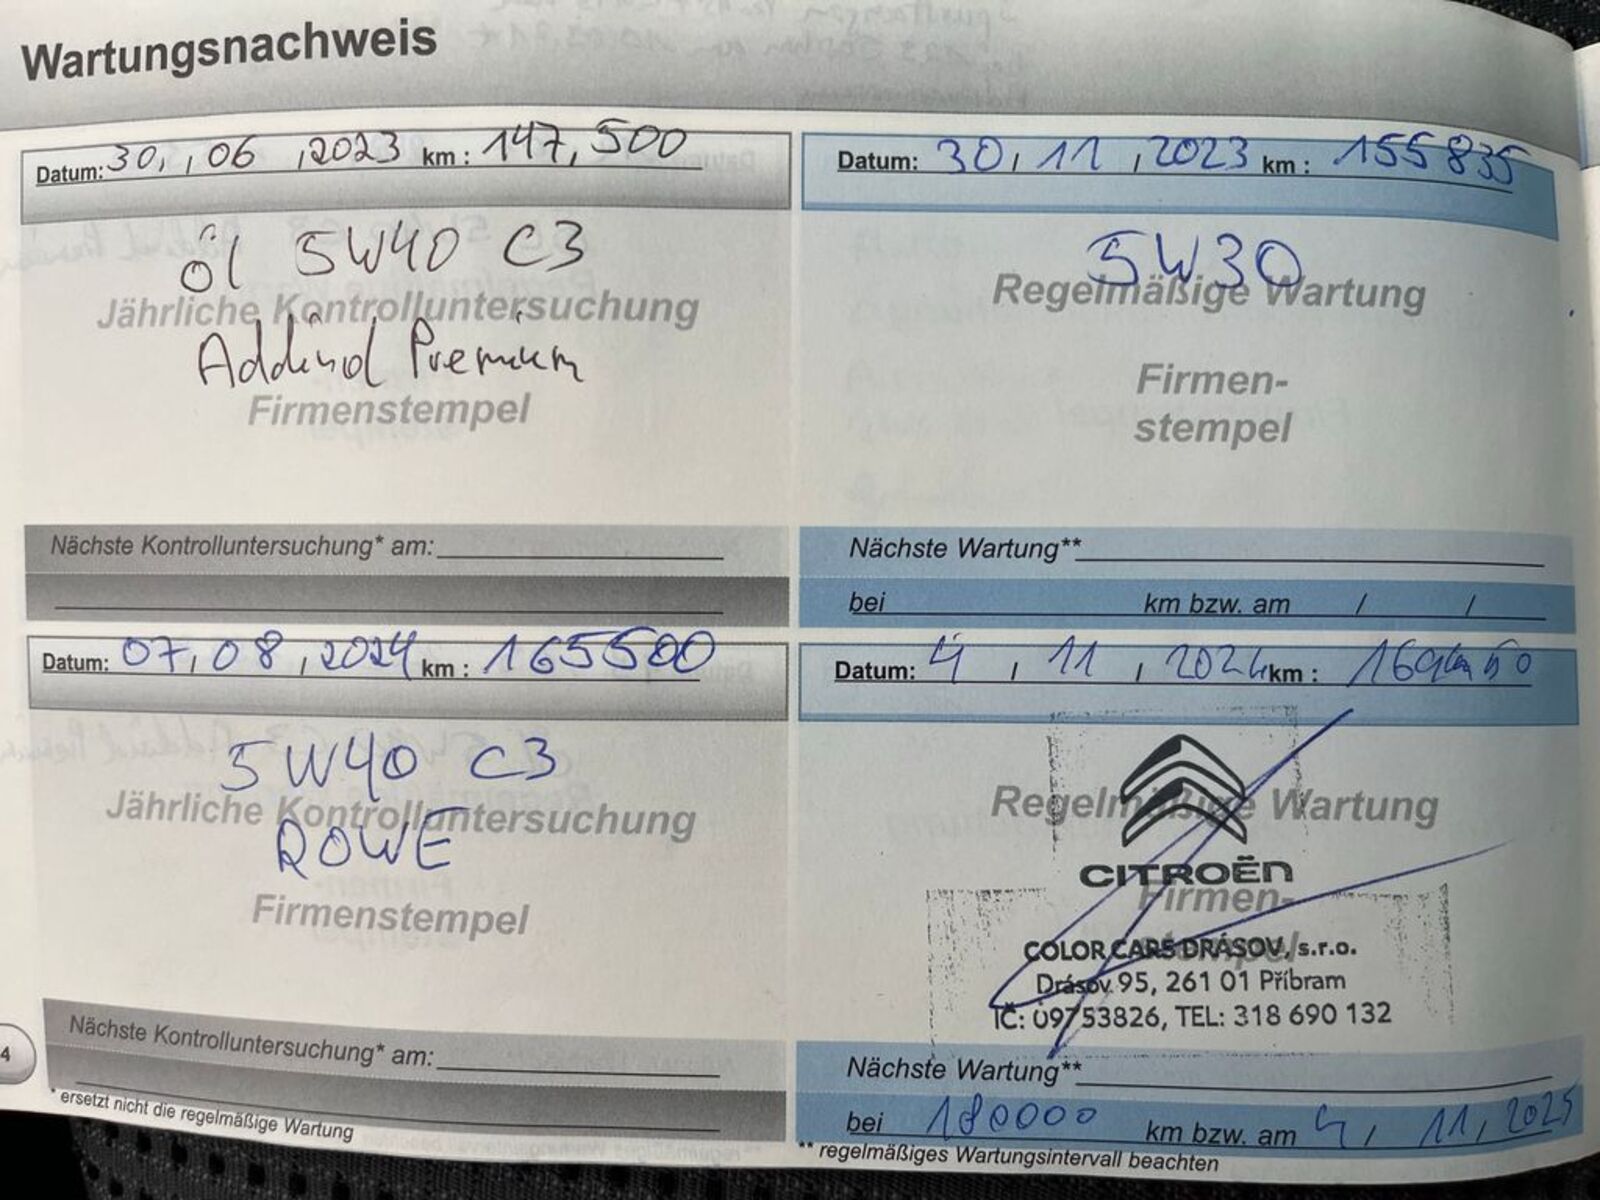 Wartungsnachweis
Datum: 30, , 06 , 2023 km : 147,500
öl 5W40 C3
Jährliche Kontrolluntersuchung
Addinol Premium
Firmenstempel
Nächste Kontrolluntersuchung* am:
Datum: 30 , 11 , 2023 km : 155835
5W30
Regelmäßige Wartung
Firmen-
stempel
Nächste Wartung**
bei km bzw. am / /
Datum: 07, 08 , 2024 km : 165500
5W40 C3
Jährliche Kontrolluntersuchung
ROWE
Firmenstempel
Nächste Kontrolluntersuchung* am:
* ersetzt nicht die regelmäßige Wartung
4
Datum: 4 , 11 , 2024 km :
Regelmäßige Wartung
CITROËN
Firmen-
stempel
COLOR CARS DRÁSOV, s.r.o.
Drásov 95, 261 01 Příbram
IČ: 09753826, TEL: 318 690 132
Nächste Wartung**
bei 180000 km bzw. am 4, 11, 2025
** regelmäßiges Wartungsintervall beachten